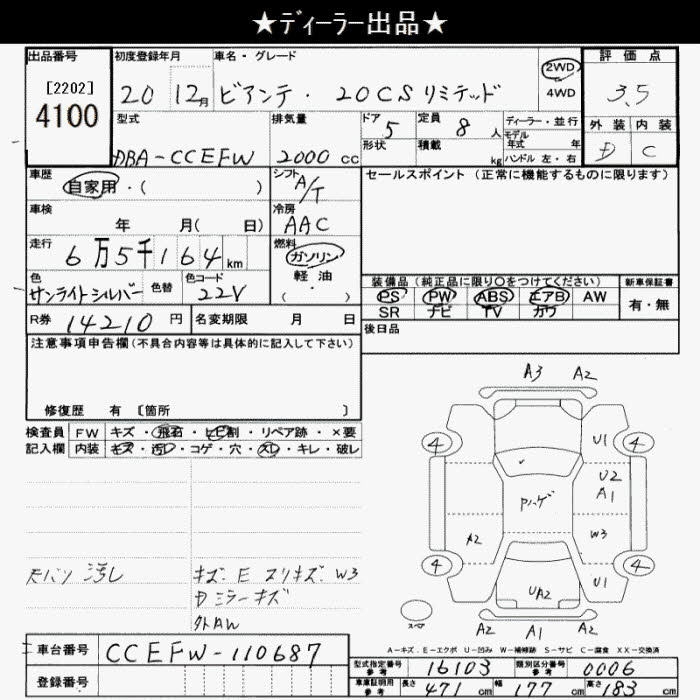 ★ディーラー出品★
出品番号 初度登録年月 車名・グレード 評価点
[2202] 4100 20 12月 ビアンテ・20CS リミテッド 2WD 4WD 3.5
型式 排気量 ドア 5 定員 8人 ディーラー・並行 外装 内装
形状 積載 kg モデル年式 年
DBA-CCEFW 2000cc ハンドル 左・右 D C
車歴 自家用・( ) シフト A/T セールスポイント(正常に機能するものに限ります)
車検 年 月( 日) 冷房 AAC
走行 6万5千164km 燃料 ガソリン
軽油
( )
色 サンライトシルバー 色替 色コード 22V
装備品(純正品に限り○をつけてください) 新車保証書
PS PW ABS エアB AW 有・無
SR ナビ TV カワ
R券 14210円 名変期限 月 日 後日品
注意事項申告欄(不具合内容等は具体的に記入して下さい)
修復歴 有 [箇所 ]
検査員 FW キズ・飛石・ヒビ割・リペア跡・×要
記入欄 内装 キズ・汚レ・コゲ・穴・スレ・キレ・破レ
A3 A2
4 4
U1
U2
A1
Pハゲ
A2 W3
4 4
U1
UA2
スペア
A2 A1 A2
天バリ 汚レ キズ・E スリキズ・W3
Dミラーキズ
外AW
A-キズ E-エクボ U-凹み W-補修跡 S-サビ C-腐食 XX-交換済
車台番号 CCEFW-110687
型式指定番号 参考 16103 類別区分番号 参考 0006
登録番号
車庫証明用 参考 長さ 471cm 幅 177cm 高さ 183cm